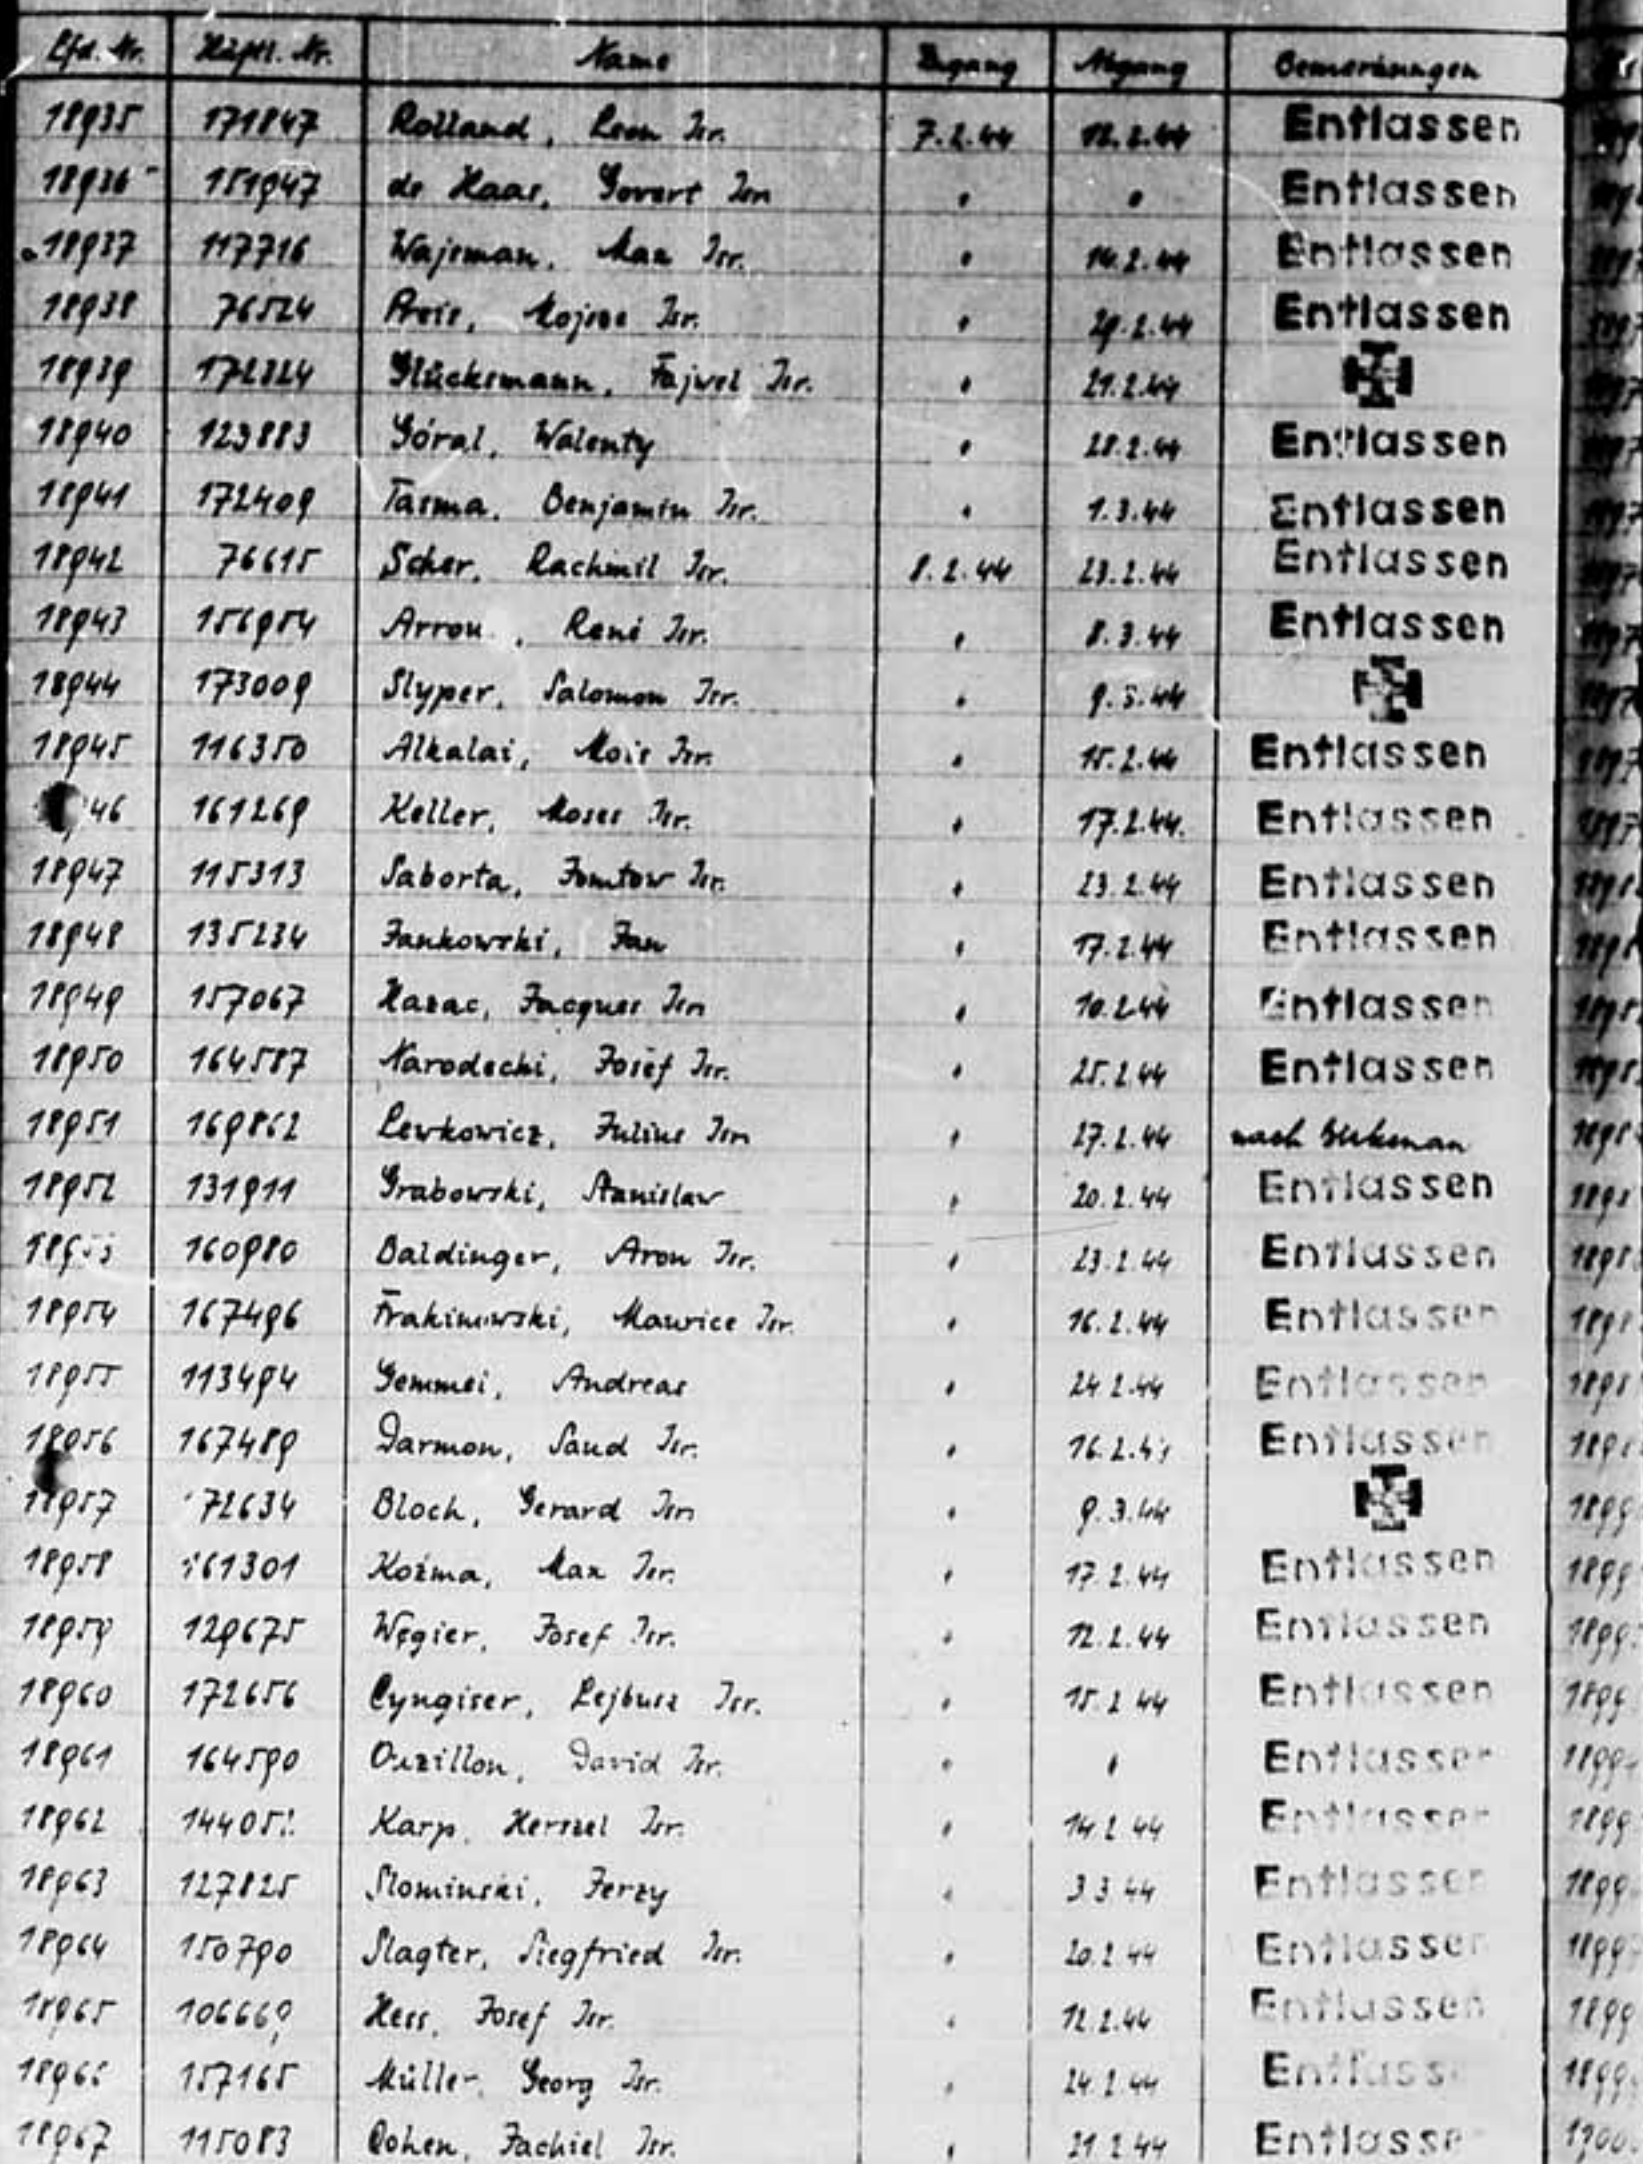 Lfd. Nr. Häftl. Nr. Name Zugang Abgang Bemerkungen
18935 171847 Rolland, Leon Isr. 7.2.44 12.2.44 Entlassen
18936 151947 de Haas, Govert Isr. " " Entlassen
18937 117716 Wajsman, Max Isr. " 14.2.44 Entlassen
18938 76524 Isr. " 29.2.44 Entlassen
18939 172324 Glücksmann, Fajwel Isr. " 21.2.44
18940 123883 Góral, Walenty " 28.2.44 Entlassen
18941 172409 Tasma, Benjamin Isr. " 1.3.44 Entlassen
18942 76615 Scher, Rachmil Isr. 8.2.44 23.2.44 Entlassen
18943 156954 Arrou, René Isr. " 8.3.44 Entlassen
18944 173009 Slyper, Salomon Isr. " 9.3.44
18945 116350 Alkalai, Mois Isr. " 15.2.44 Entlassen
46 161269 Keller, Moses Isr. " 17.2.44. Entlassen
18947 115313 Saborta, Jomtow Isr. " 23.2.44 Entlassen
18948 135234 Jankowski, Jan " 17.2.44 Entlassen
18949 157067 Hazac, Jacques Isr. " 10.2.44 Entlassen
18950 164587 Narodecki, Josef Isr. " 25.2.44 Entlassen
18951 169862 Lewkowicz, Julius Isr. " 27.2.44 nach
18952 131911 Grabowski, Stanislaw " 20.2.44 Entlassen
160980 Baldinger, Aron Isr. " 23.2.44 Entlassen
18954 167496 Maurice Isr. " 16.2.44 Entlassen
18955 113494 Gemmei, Andreas " 24.2.44 Entlassen
18956 167489 Darmon, Saud Isr. " Entlassen
18957 72634 Bloch, Gerard Isr. " 9.3.44
18958 161301 Kozma, Max Isr. " 17.2.44 Entlassen
18959 129675 Węgier, Josef Isr. " 12.2.44 Entlassen
18960 172656 Cyngiser, Lejbusz Isr. " 15.2.44 Entlassen
18961 164590 Ouzillon, David Isr. " " Entlassen
18962 Karp, Herszel Isr. " 14.2.44 Entlassen
18963 127825 Slominski, Jerzy " 3.3.44 Entlassen
18964 150790 Slagter, Siegfried Isr. " 20.2.44 Entlassen
18965 106669 Hess, Josef Isr. " 12.2.44 Entlassen
157165 Müller, Georg Isr. " 24.2.44 Entlassen
18967 115083 Cohen, Jachiel Isr. " 21.2.44 Entlassen